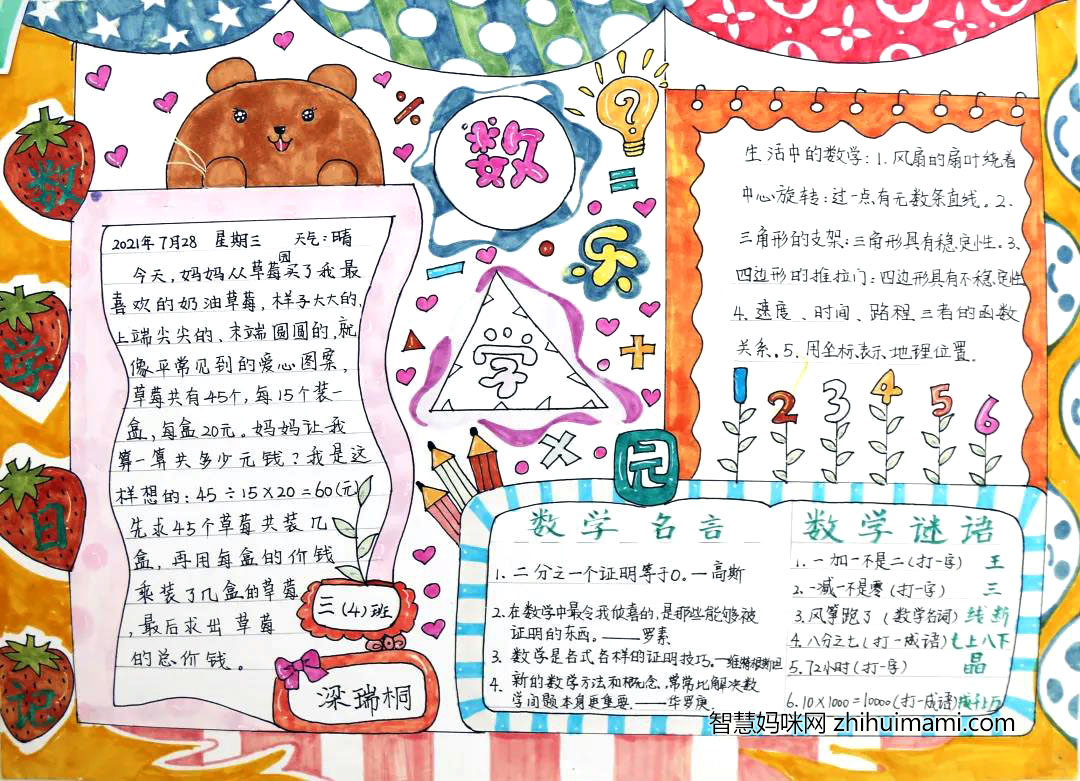 数
学
日
记
数
学
乐
园
2021年7月28 星期三 天气:晴
今天,妈妈从草莓园买了我最
喜欢的奶油草莓,样子大大的,
上端尖尖的、末端圆圆的,就
像平常见到的爱心图案,
草莓共有45个,每15个装一
盒,每盒20元。妈妈让我
算一算共多少元钱?我是这
样想的:45÷15×20=60(元)
先求45个草莓共装几
盒,再用每盒的价钱
乘装了几盒的草莓
,最后求出 草莓
的总价钱。
三(4)班
梁瑞桐
生活中的数学:1.风扇的扇叶绕着
中心旋转:过一点有无数条直线。2、
三角形的支架:三角形具有稳定性。3、
四边形的推拉门:四边形具有不稳定性
4、速度、时间、路程三者的函数
关系。5、用坐标表示地理位置。
1 2 3 4 5 6
数学名言
1、二分之一个证明等于0。—高斯
2、在数学中最令我欣喜的,是那些能够被
证明的东西。——罗素
3、数学是各式各样的证明技巧。—维特根斯坦
4、新的数学方法和概念,常常比解决数
学问题本身更重要。——华罗庚
数学谜语
1.一加一不是二(打一字) 王
2.一减一不是零(打一字) 三
3.风筝跑了(数学名词) 线断
4.八分之七(打一成语)七上八下
5.72小时(打一字) 晶
6.10×1000=10000(打一成语)成千上万
智慧妈咪网 zhihuimami.com